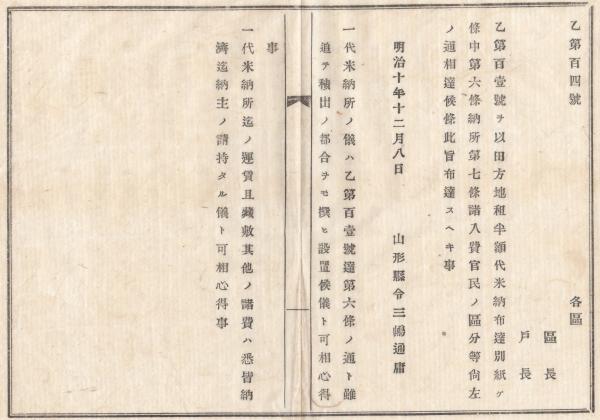 乙第百四號
各區
區長
戸長
乙第百壹號ヲ以田方地租半額代米納布達別紙ケ
條中第六條納所第七條諸入費官民ノ區分等尙左
ノ通相達候條此旨布達スヘキ事
明治十年十二月八日　山形縣令三嶋通庸
一代米納所ノ儀ハ乙第百壹號達第六條ノ通ト雖
追テ積出ノ都合ヲモ撰ヒ設置候儀ト可相心得
事
一代米納所迄ノ運賃且藏敷其他ノ諸費ハ悉皆納
濟迄納主ノ請持タル儀ト可相心得事